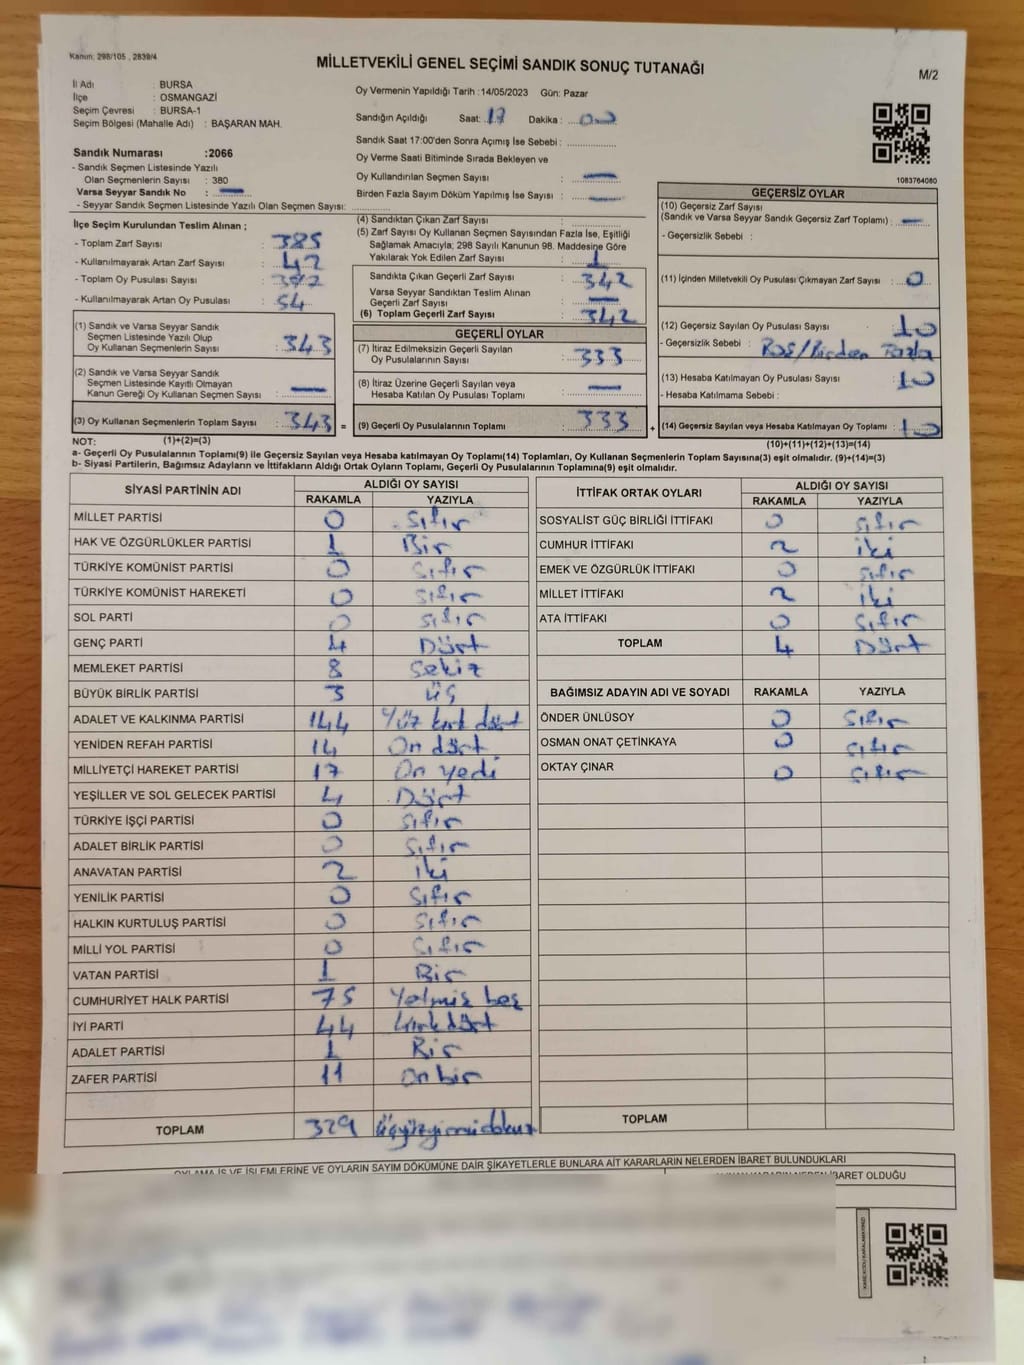 Kanun: 298/105 , 2839/4
MİLLETVEKİLİ GENEL SEÇİMİ SANDIK SONUÇ TUTANAĞI
M/2
İl Adı : BURSA
İlçe : OSMANGAZİ
Seçim Çevresi : BURSA-1
Seçim Bölgesi (Mahalle Adı) : BAŞARAN MAH.
Sandık Numarası :2066
- Sandık Seçmen Listesinde Yazılı
Olan Seçmenlerin Sayısı : 380
Varsa Seyyar Sandık No : —
- Seyyar Sandık Seçmen Listesinde Yazılı Olan Seçmen Sayısı:
Oy Vermenin Yapıldığı Tarih :14/05/2023 Gün: Pazar
Sandığın Açıldığı Saat: 17 Dakika : 00
Sandık Saat 17:00'den Sonra Açımış İse Sebebi :
Oy Verme Saati Bitiminde Sırada Bekleyen ve
Oy Kullandırılan Seçmen Sayısı : —
Birden Fazla Sayım Döküm Yapılmış İse Sayısı : —
1083764080
İlçe Seçim Kurulundan Teslim Alınan ;
- Toplam Zarf Sayısı : 385
- Kullanılmayarak Artan Zarf Sayısı : 42
- Toplam Oy Pusulası Sayısı : 397
- Kullanılmayarak Artan Oy Pusulası : 54
(1) Sandık ve Varsa Seyyar Sandık
Seçmen Listesinde Yazılı Olup
Oy Kullanan Seçmenlerin Sayısı : 343
(2) Sandık ve Varsa Seyyar Sandık
Seçmen Listesinde Kayıtlı Olmayan
Kanun Gereği Oy Kullanan Seçmen Sayısı : —
(3) Oy Kullanan Seçmenlerin Toplam Sayısı : 343 =
(4) Sandıktan Çıkan Zarf Sayısı :
(5) Zarf Sayısı Oy Kullanan Seçmen Sayısından Fazla İse, Eşitliği
Sağlamak Amacıyla; 298 Sayılı Kanunun 98. Maddesine Göre
Yakılarak Yok Edilen Zarf Sayısı : 1
Sandıkta Çıkan Geçerli Zarf Sayısı : 342
Varsa Seyyar Sandıktan Teslim Alınan
Geçerli Zarf Sayısı : —
(6) Toplam Geçerli Zarf Sayısı : 342
GEÇERLİ OYLAR
(7) İtiraz Edilmeksizin Geçerli Sayılan
Oy Pusulalarının Sayısı : 333
(8) İtiraz Üzerine Geçerli Sayılan veya
Hesaba Katılan Oy Pusulası Toplamı : —
(9) Geçerli Oy Pusulalarının Toplamı : 333 +
GEÇERSİZ OYLAR
(10) Geçersiz Zarf Sayısı
(Sandık ve Varsa Seyyar Sandık Geçersiz Zarf Toplamı) : —
- Geçersizlik Sebebi :
(11) İçinden Milletvekili Oy Pusulası Çıkmayan Zarf Sayısı : 0
(12) Geçersiz Sayılan Oy Pusulası Sayısı : 10
- Geçersizlik Sebebi : Boş/Birden Fazla
(13) Hesaba Katılmayan Oy Pusulası Sayısı : 10
- Hesaba Katılmama Sebebi :
(14) Geçersiz Sayılan veya Hesaba Katılmayan Oy Toplamı : 10
NOT: (1)+(2)=(3) (10)+(11)+(12)+(13)=(14)
a- Geçerli Oy Pusulalarının Toplamı(9) ile Geçersiz Sayılan veya Hesaba katılmayan Oy Toplamı(14) Toplamları, Oy Kullanan Seçmenlerin Toplam Sayısına(3) eşit olmalıdır. (9)+(14)=(3)
b- Siyasi Partilerin, Bağımsız Adayların ve İttifakların Aldığı Ortak Oyların Toplamı, Geçerli Oy Pusulalarının Toplamına(9) eşit olmalıdır.
SİYASİ PARTİNİN ADI ALDIĞI OY SAYISI
RAKAMLA YAZIYLA
MİLLET PARTİSİ 0 Sıfır
HAK VE ÖZGÜRLÜKLER PARTİSİ 1 Bir
TÜRKİYE KOMÜNİST PARTİSİ 0 Sıfır
TÜRKİYE KOMÜNİST HAREKETİ 0 Sıfır
SOL PARTİ 0 Sıfır
GENÇ PARTİ 4 Dört
MEMLEKET PARTİSİ 8 Sekiz
BÜYÜK BİRLİK PARTİSİ 3 üç
ADALET VE KALKINMA PARTİSİ 144 Yüz kırk dört
YENİDEN REFAH PARTİSİ 14 On dört
MİLLİYETÇİ HAREKET PARTİSİ 17 On yedi
YEŞİLLER VE SOL GELECEK PARTİSİ 4 Dört
TÜRKİYE İŞÇİ PARTİSİ 0 Sıfır
ADALET BİRLİK PARTİSİ 0 Sıfır
ANAVATAN PARTİSİ 2 iki
YENİLİK PARTİSİ 0 Sıfır
HALKIN KURTULUŞ PARTİSİ 0 Sıfır
MİLLİ YOL PARTİSİ 0 Sıfır
VATAN PARTİSİ 1 Bir
CUMHURİYET HALK PARTİSİ 75 Yetmiş beş
İYİ PARTİ 44 kırk dört
ADALET PARTİSİ 1 Bir
ZAFER PARTİSİ 11 On bir
TOPLAM 329 Üçyüzyirmidokuz
İTTİFAK ORTAK OYLARI ALDIĞI OY SAYISI
RAKAMLA YAZIYLA
SOSYALİST GÜÇ BİRLİĞİ İTTİFAKI 0 Sıfır
CUMHUR İTTİFAKI 2 iki
EMEK VE ÖZGÜRLÜK İTTİFAKI 0 Sıfır
MİLLET İTTİFAKI 2 iki
ATA İTTİFAKI 0 Sıfır
TOPLAM 4 Dört
BAĞIMSIZ ADAYIN ADI VE SOYADI RAKAMLA YAZIYLA
ÖNDER ÜNLÜSOY 0 Sıfır
OSMAN ONAT ÇETİNKAYA 0 Sıfır
OKTAY ÇINAR 0 Sıfır
TOPLAM
OYLAMA İŞ VE İŞLEMLERİNE VE OYLARIN SAYIM DÖKÜMÜNE DAİR ŞİKAYETLERLE BUNLARA AİT KARARLARIN NELERDEN İBARET BULUNDUKLARI
İBARET OLDUĞU